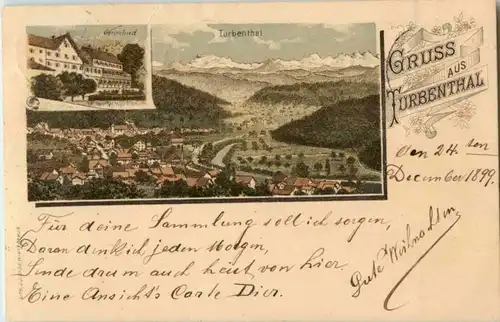 Gyrenbad
Turbenthal
GRUSS
AUS
TURBENTHAL
den 24. ten
December 1899.
Für deine Sammlung soll ich sorgen,
Daran denk ich jeden Morgen,
Sende drum auch heut von hier.
Eine Ansicht's Carte Dir.
Gute Weihnachten